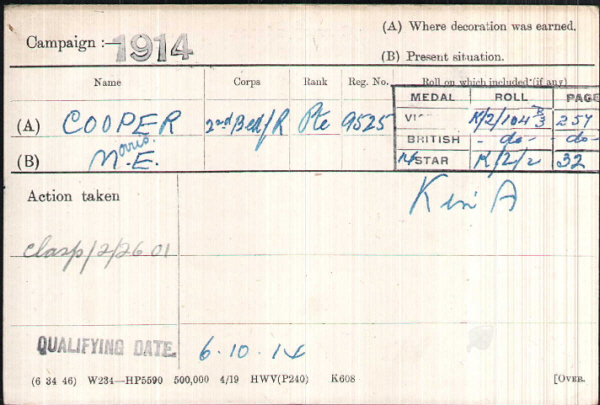 (A) Where decoration was earned.
Campaign :— 1914
(B) Present situation.
Name Corps Rank Reg. No. Roll on which included (if any)
MEDAL ROLL PAGE
(A) COOPER 2nd Bed/R Pte 9525 VI K/2/104 B3 257
BRITISH - do - do-
(B) Morris. M.E. 14 STAR K/2/2 32
Action taken K in A
Clasp/2/26 01
QUALIFYING DATE. 6.10.14
(6 34 46) W234—HP5590 500,000 4/19 HWV(P240) K608 [OVER.